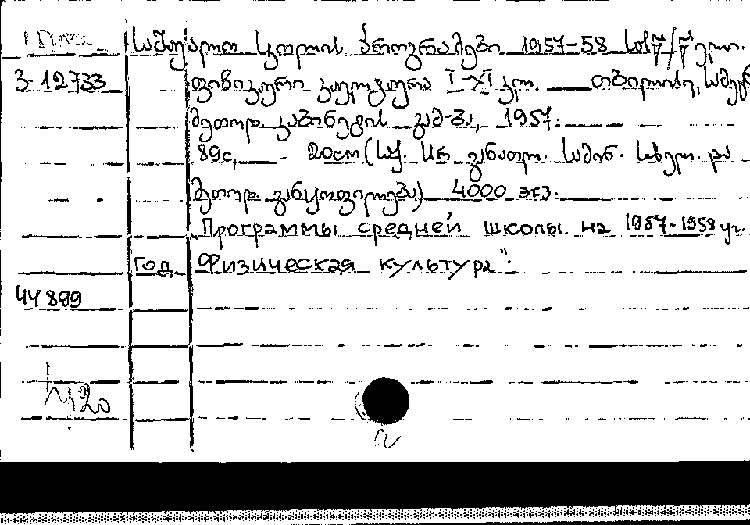 საშუალო სკოლის პროგრამები 1957-58 სას/წ წელი.
3-12733 ფიზიკური კულტურა I-XI კლ. თბილისი, სამეც
მეთოდ. კაბინეტის გამ-ბა, 1957.
89с, 20cm (საქ. სსრ განათლ. სამინ. სასკოლ. და
მეთოდ განყოფილება) 4000 ეგზ.
Программы средней школы на 1957-1958 уч.
год „Физическая культура".
44899